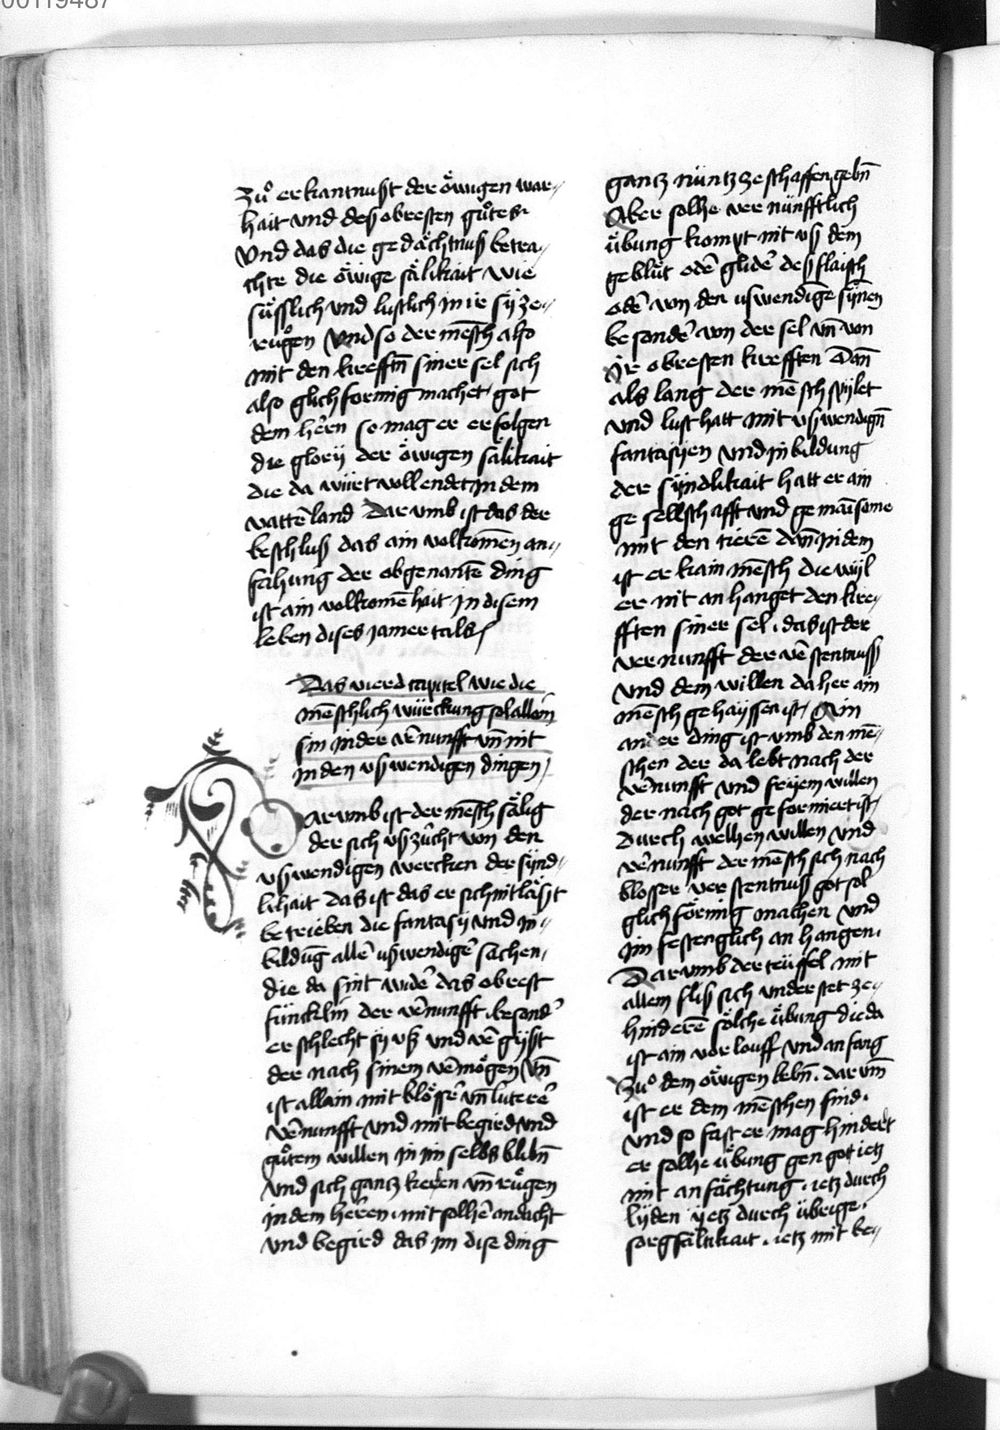 00119487
Zuͦ erkantnuſſt der oͤwigen war⸗
hait vnd deſſ obreſten guͦtes
Vnd das die gedaͤchtnuſſ betra⸗
chte die oͤwige ſaͤlikait wie
ſuͤſſlich vnd luſtlich in ir ſy ze⸗
ruͦgen Vnd ſo der mēſch alſo
mit den krefftn̄ ſiner ſel ſich
alſo glichformig machet got
dem her̄n ſo mag er erfolgen
die glory der oͤwigen ſaͤlikait
die da wuͤrt vollendet in dem
vatterͤland Dar vmb iſt das der
beſchluſſ das ain volkomen̄ an⸗
fahung der obgenantē ding
iſt ain volkomē hait in diſem
leben diſes jamertals
Das vierd capitel wie die
mēſchlich wuͤrckung ſol allain
ſin in der v̄nunfft vn̄ nit
in den vſwendigen dingen
Darvmb iſt der mēſch ſaͤlig
der ſich vſſzuͤcht von den
vſſwendigen wercken der ſynd⸗
likait das iſt das er ſich nit laͤſſt
betrieben die fantaſy vnd in⸗
bildūg allē vſſwendigē ſachen
die da ſint widē das obreſt
fuͤncklin der v̄nunfft beſondē
er ſchlecht ſy vſſ vnd v̄gyſſt
der nach ſinem v̄moͤgen Vn̄
iſt allain mit bloͤſſē vn̄ luterē
v̄nunfft vnd mit begird vnd
guͦtem willen in im ſelbs blibn̄
vnd ſich gancz keren vn̄ ruͦgen
in dem her̄en mit ſollicher̄ andacht
vnd begird das im diſe ding
gancz nuͤntz ze ſchaffen gebn̄
Aber ſolhe vernuͤnfftlich
uͤbung kompt nit vſſ dem
gebluͤt odē glidē deſſ flaiſch
odē von den vſwendigē ſynen
beſondē von der ſel vn̄ von
Ir obreſten krefften Dan̄
als lang der mēſch ſpilet
vnd luſt hatt mit vſſwendign̄
fantaſyen vnd inbildung
der ſyndlikait hatt er ain
geſellſchafft vnd gemainſame
mit den tierē dan̄ in dem
iſt er kain mēſch die wyl
er nit anhanget den kre⸗
fften ſiner ſel das iſt der
vernunfft der v̄ſtentnuſſ
vnd dem willen da her ain
mēſch gehayſſen iſt Ain
ander ding iſt vmb den mē⸗
ſchen der da lebt nach der
v̄nunfft vnd fryem willen
der nach got geformiert iſt
durch wellhen willen vnd
v̄nunfft der mēſch ſich nach
bloſſer verſtentnuſſ got ſol
glich foͤrmig machen vnd
im feſtenglich anhangen
Darvmb der teuͤffel mit
allem fliſſ ſich vnderſtet ze⸗
hinderē ſoͤlche uͤbung die da
iſt ain vorlouff vnd anfang
Zuͦ dem oͤwigen lebn̄ darvm̄
iſt er dem mēſchen find
vnd ſo faſt er mag hindert
er ſolhe uͤbung gen got ietz
mit anfaͤchtung ietz durch
lyden yetz durch uͤbrige
ſorgfaͤltikait ietz mit be⸗